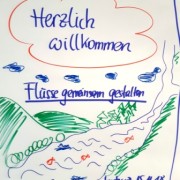 Herzlich
willkommen
Flüsse gemeinsam gestalten